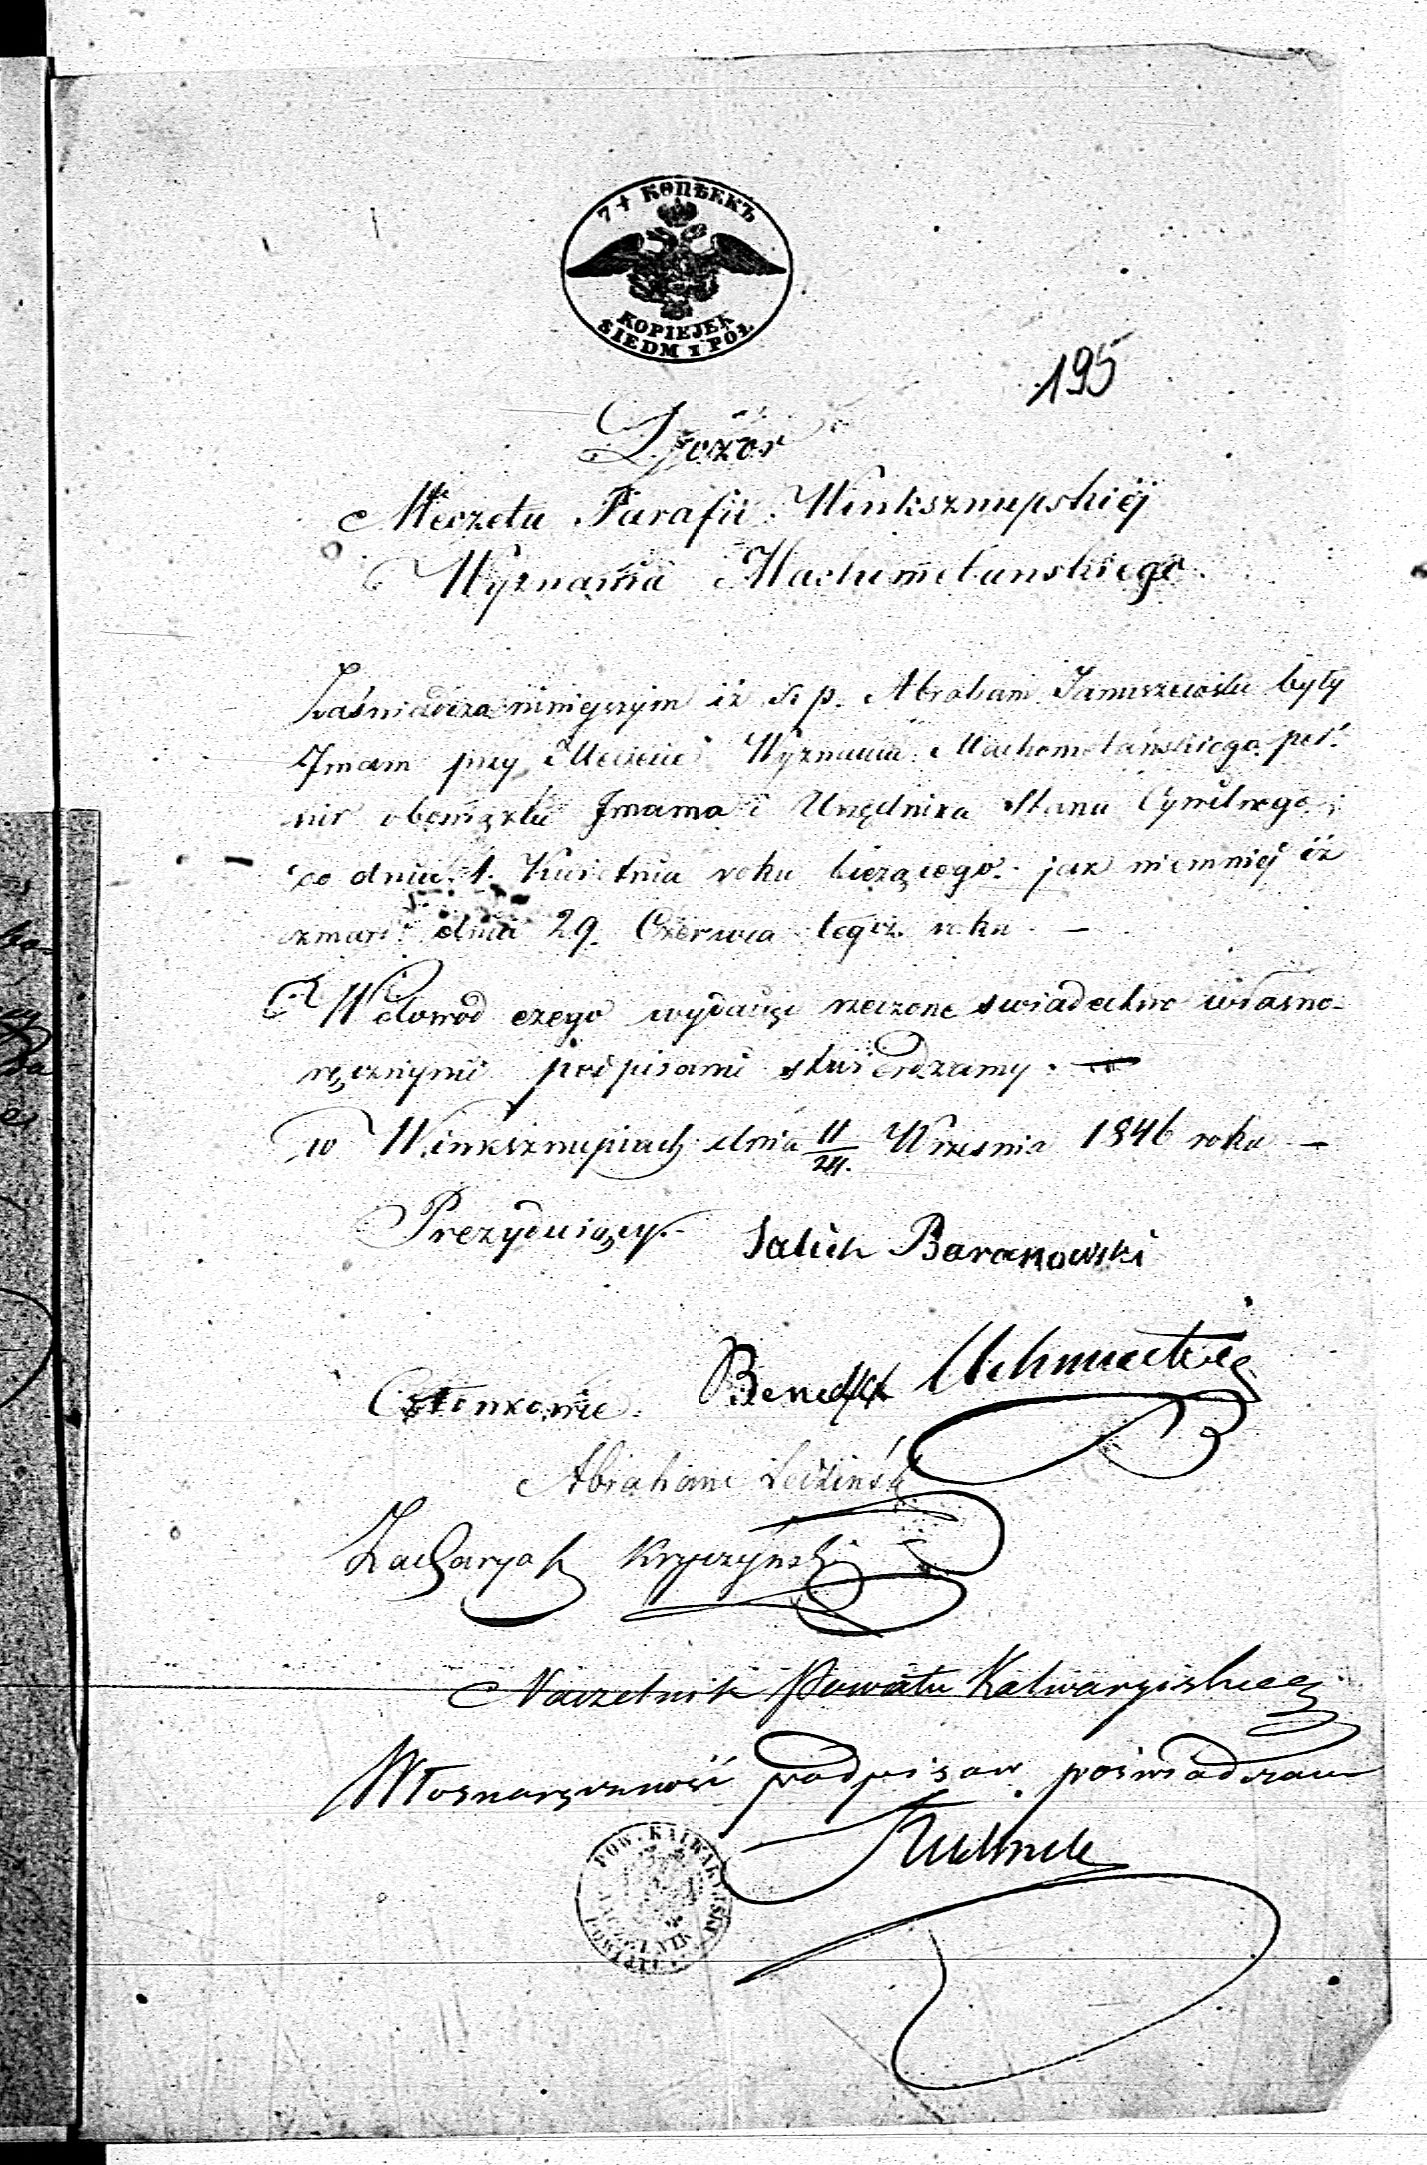 7½ КОПѢЕКЪ
KOPIEJEK
SIEDM I PÓŁ
195
Dozór
Meczetu Parafii Winksznupskiéj
Wyznania Machometanskiego
Zaświadcza niniejszym iż ś. p. Abraham Januszewski były
Imam przy Meczecie Wyznania Machometańskiego peł-
nił obowiązki Imama i Urzędnika Stanu Cywilnego
do dnia 1. Kwietnia roku bieżącego jak niemniéj iż
zmarł dnia 29. Czerwca tegoż roku —
W dowód czego wydając rzeczone swiadectwo własno-
ręcznymi podpisami stwierdzamy. —
w Winksznupiach dnia 11/24. Wrzesnia 1846 roku —
Prezydujący. Salich Baranowski
Członkowie. Benedykt Achmatowicz
Abraham
Zacharyah Kryczyński
Naczelnik Powiatu Kalwaryiskiego
Własnoręczność podpisów poświadczam
POW. KALWARYISKI
NACZELNIK
POWIATU